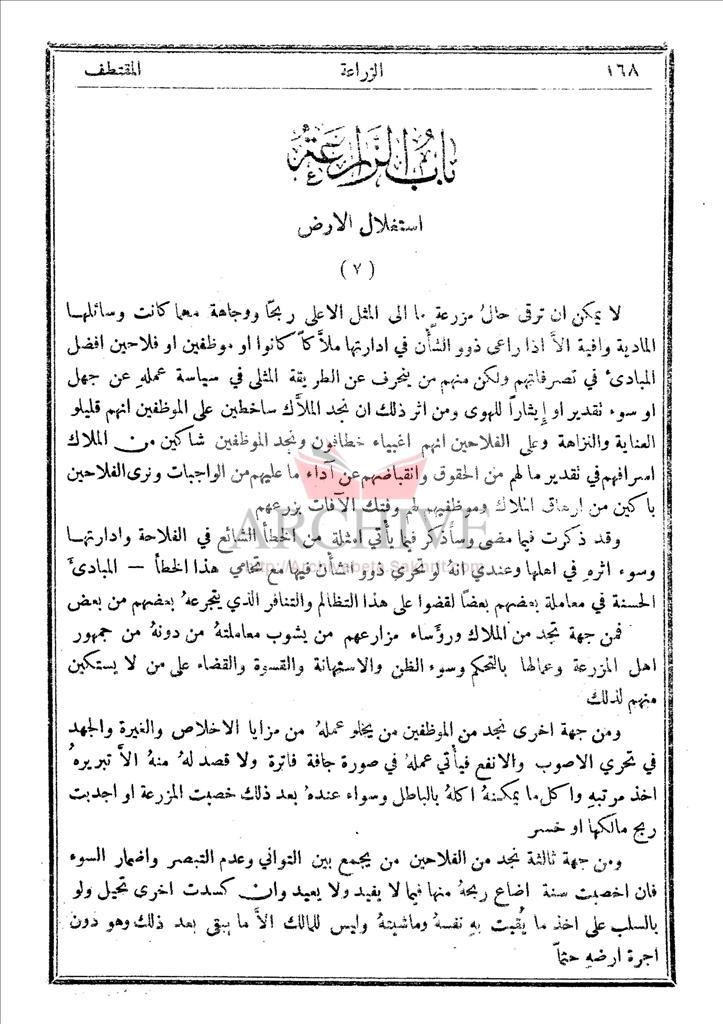 ١٦٨ الزراعة المقتطف
باب الزراعة
استغلال الارض
(٧)
لا يمكن ان ترقى حالُ مزرعة ما الى المثل الاعلى ربحًا ووجاهة مهما كانت وسائلها
المادية وافية الاَّ اذا راعى ذوو الشأن في ادارتها ملاَّكاً كانوا او موظفين او فلاحين افضل
المبادئ في تصرفاتهم ولكن منهم من ينحرف عن الطريقة المثلى في سياسة عملهِ عن جهل
او سوء تقدير او إيثاراً للهوى ومن اثر ذلك ان نجد الملاَّك ساخطين على الموظفين انهم قليلو
العناية والنزاهة وعلى الفلاحين انهم اغبياء خطافون ونجد الموظفين شاكين من الملاك
اسرافهم في تقدير ما لهم من الحقوق وانقباضهم عن أداء ما عليهم من الواجبات ونرى الفلاحين
باكين من ارهاق الملاك وموظفيهم لهم وفتك الآفات بزرعهم
وقد ذكرت فيما مضى وسأذكر فيما يأتي امثلة من الخطأ الشائع في الفلاحة وادارتها
وسوء اثرهِ في اهلها وعندي انهُ لو تحرى ذوو الشأن فيها مع تحامي هذا الخطأ — المبادئ
الحسنة في معاملة بعضهم بعضًا لقضوا على هذا التظالم والتنافر الذي يتجرعهُ بعضهم من بعض
فمن جهة تجد من الملاك ورؤساء مزارعهم من يشوب معاملتهُ من دونهُ من جمهور
اهل المزرعة وعمالها بالتحكم وسوء الظن والاستهانة والقسوة والقضاء على من لا يستكين
منهم لذلك
ومن جهة اخرى نجد من الموظفين من يخلو عملهُ من مزايا الاخلاص والغيرة والجهد
في تحري الاصوب والانفع فيأتي عملهُ في صورة جافة فاترة ولا قصد لهُ منهُ الاَّ تبريرهُ
اخذ مرتبهِ واكل ما يمكنهُ اكلهُ بالباطل وسواء عندهُ بعد ذلك خصبت المزرعة او اجدبت
ربح مالكها او خسر
ومن جهة ثالثة نجد من الفلاحين من يجمع بين التواني وعدم التبصر واضمار السوء
فان اخصبت سنة اضاع ربحهُ منها فيما لا يفيد ولا يعيد وان كسدت اخرى تحيل ولو
بالسلب على اخذ ما يُقيت بهِ نفسهُ وماشيتهُ وليس للمالك الاَّ ما يبقى بعد ذلك وهو دون
اجرة ارضهِ حتماً
ARCHIVE
http://Archivebeta.Sakhrit.com